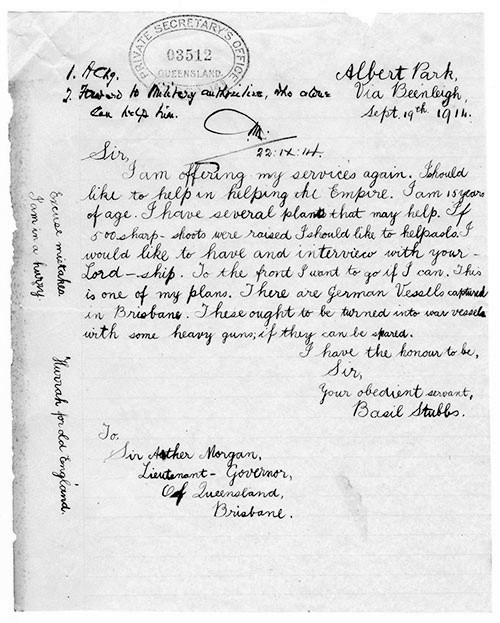 PRIVATE SECRETARY'S OFFICE
03512
QUEENSLAND
1. Ackg.
2. Forward to Military authorities, who alone
can help him.
A.M.
22.IX.14.
Albert Park,
Via Beenleigh,
Sept. 19th 1914.
Sir,
I am offering my services again. I should
like to help in helping the Empire. I am 15 years
of age. I have several plans that may help. If
500 sharp-shoots were raised I should like to help also. I
would like to have and interview with your-
Lord-ship. To the front I want to go if I can. This
is one of my plans. There are German Vessells captured
in Brisbane. These ought to be turned into war vessels
with some heavy guns; if they can be spared.
I have the honour to be,
Sir,
Your obedient servant,
Basil Stubbs.
To,
Sir Arther Morgan,
Lieutenant-Governor,
Of Queensland,
Brisbane.
Excuse mistakes
I am in a hurrey
Hurrah for old England.